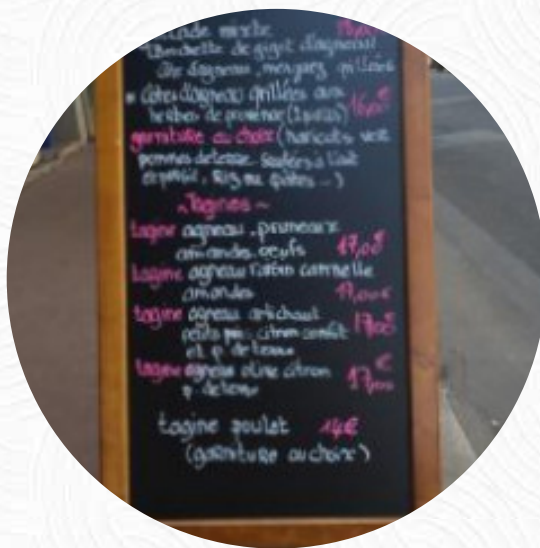 mixte
Brochette de gigot d'agneau
Côte d'agneau, merguez grillées
* Côtes d'agneau grillées aux
herbes de provence (3 pièces) 16,00€
garniture au choix (haricots vert
pommes de terre sautées à l'ail
et persil, Riz ou pâtes...)
~Tagines~
tagine agneau, pruneaux
amandes oeufs 17,00€
tagine agneau raisin cannelle
amandes 17,00€
tagine agneau artichaut
petits pois citron confit 17,00€
et p. de terre
tagine agneau olive citron €
p. de terre 17,00
tagine poulet 14€
(garniture au choix)